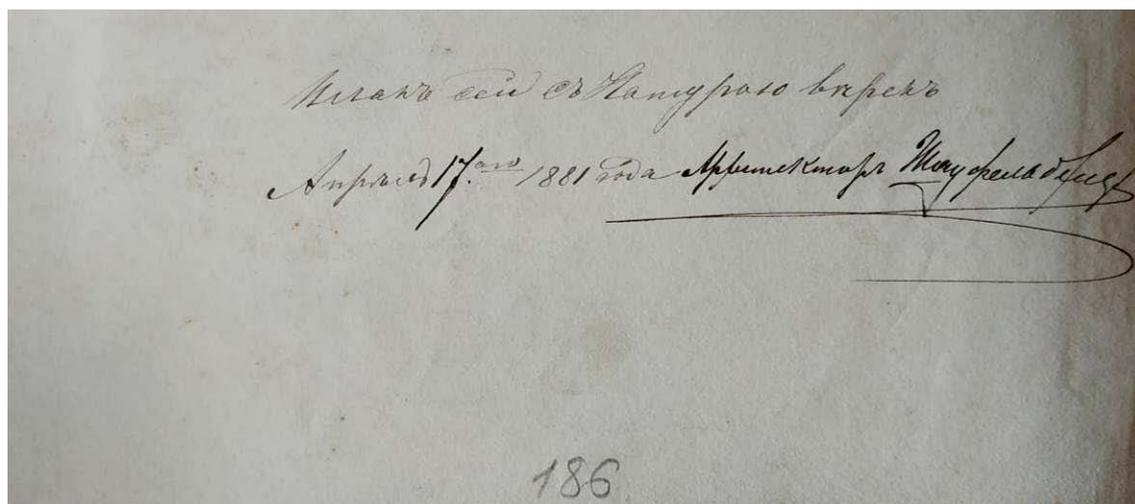 Планъ сей съ Натурою вѣренъ
Апрѣля 17.ого 1881 года Архитекторъ
186